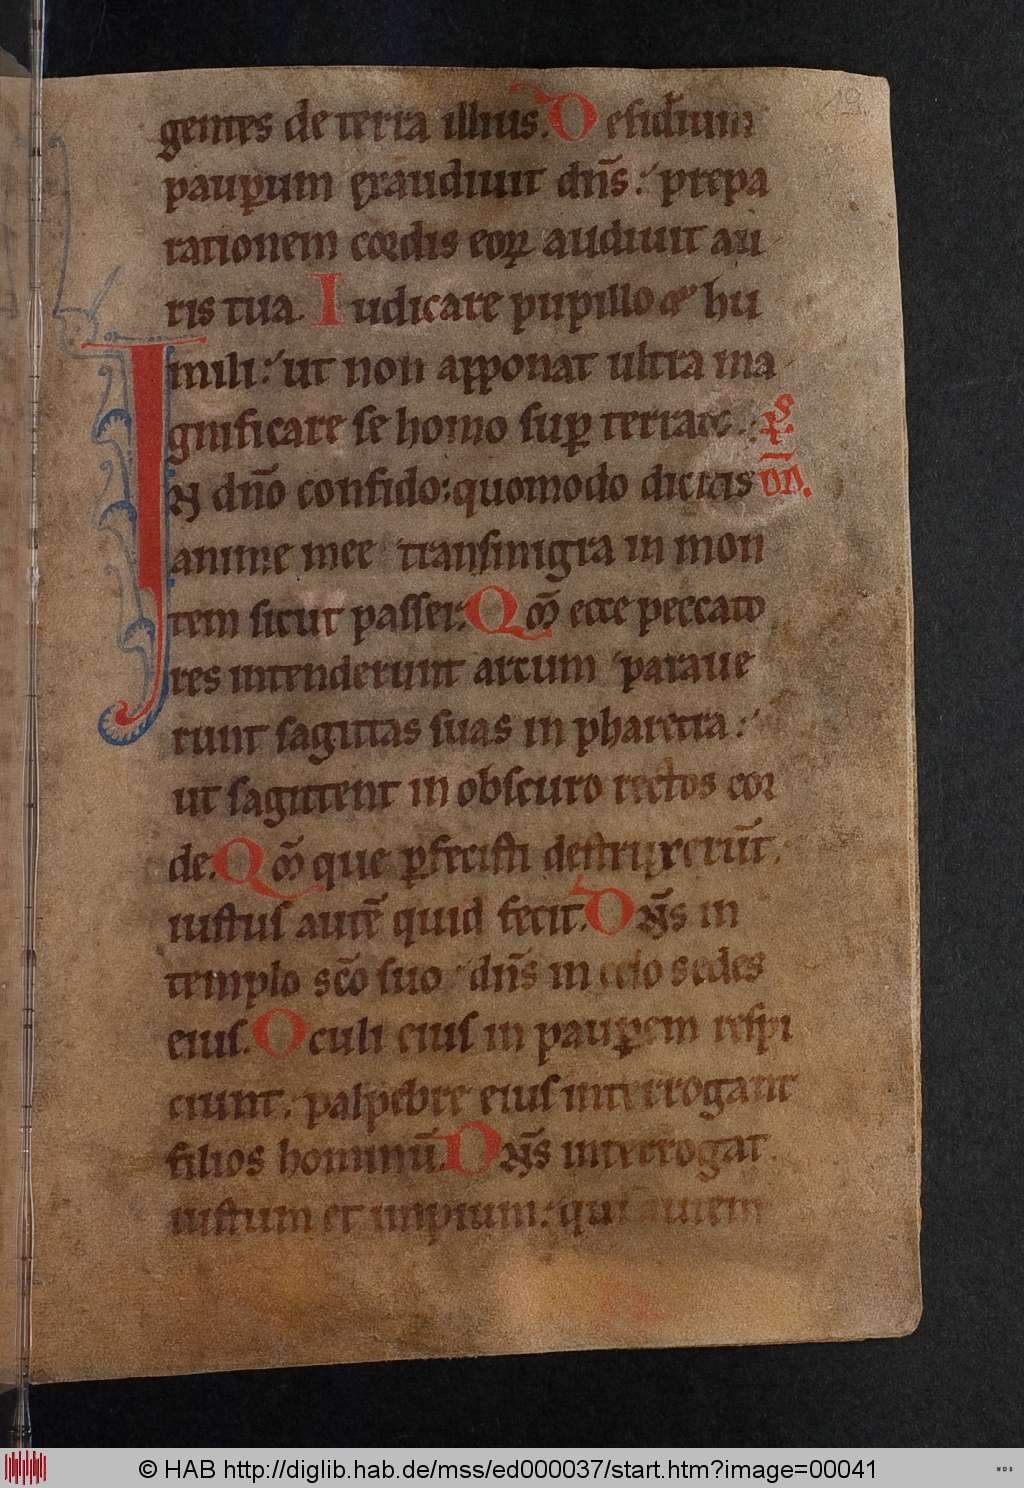 19.
gentes de terra illius. Desid̄ium
paup̲um exaudiuit dn̄s: prepa
rationem cordis eoꝝ audiuit au
ris tua. Iudicare pupillo et hu
mili: ut non apponat ultra ma
gnificare se homo suꝑ terram. ps̄
IN dn̄o confido: quomodo dicitis DD̄.
anime mee transmigra in mon
tem sicut passer. Qm̄ ecce peccato
res intenderunt arcum paraue
runt sagittas suas in pharetra:
ut sagittent in obscuro rectos cor
de. Qm̄ que ꝑfecisti destruxerūt.
iustus autē quid fecit. Dn̄s in
templo sc̄o suo dn̄s in celo sedes
eius. Oculi eius in pauꝑem respi
ciunt. palpebre eius interrogant
filios hominū. Dn̄s interrogat
iustum et impium: qui autem
© HAB http://diglib.hab.de/mss/ed000037/start.htm?image=00041